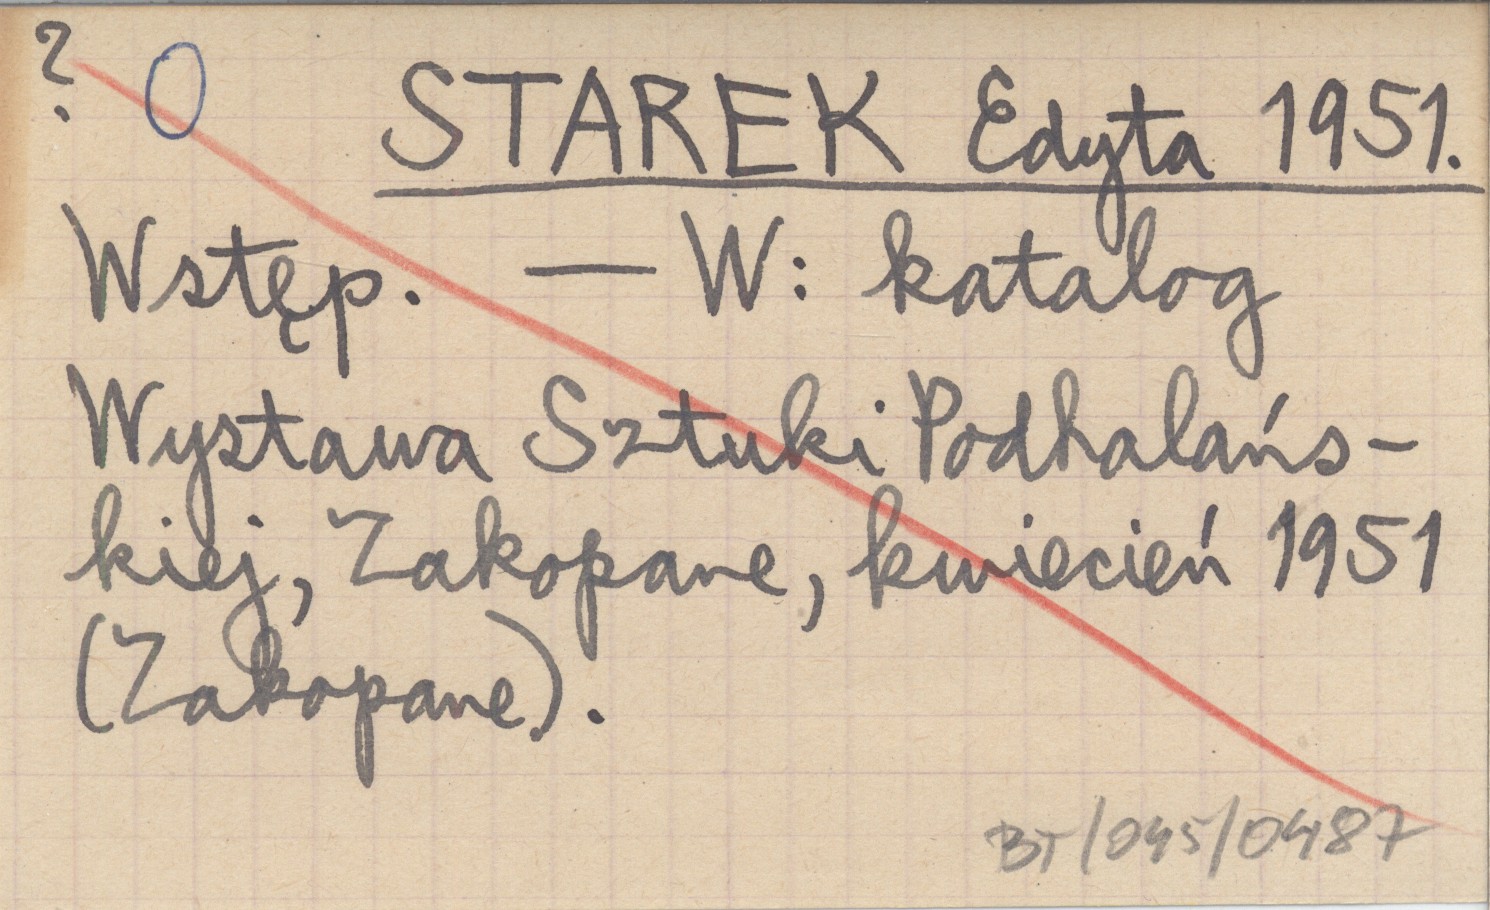 ? 0 STAREK Edyta 1951.
Wstęp. — W: katalog
Wystawa Sztuki Podhalańs-
kiej, Zakopane, kwiecień 1951
(Zakopane).
BT/045/0487